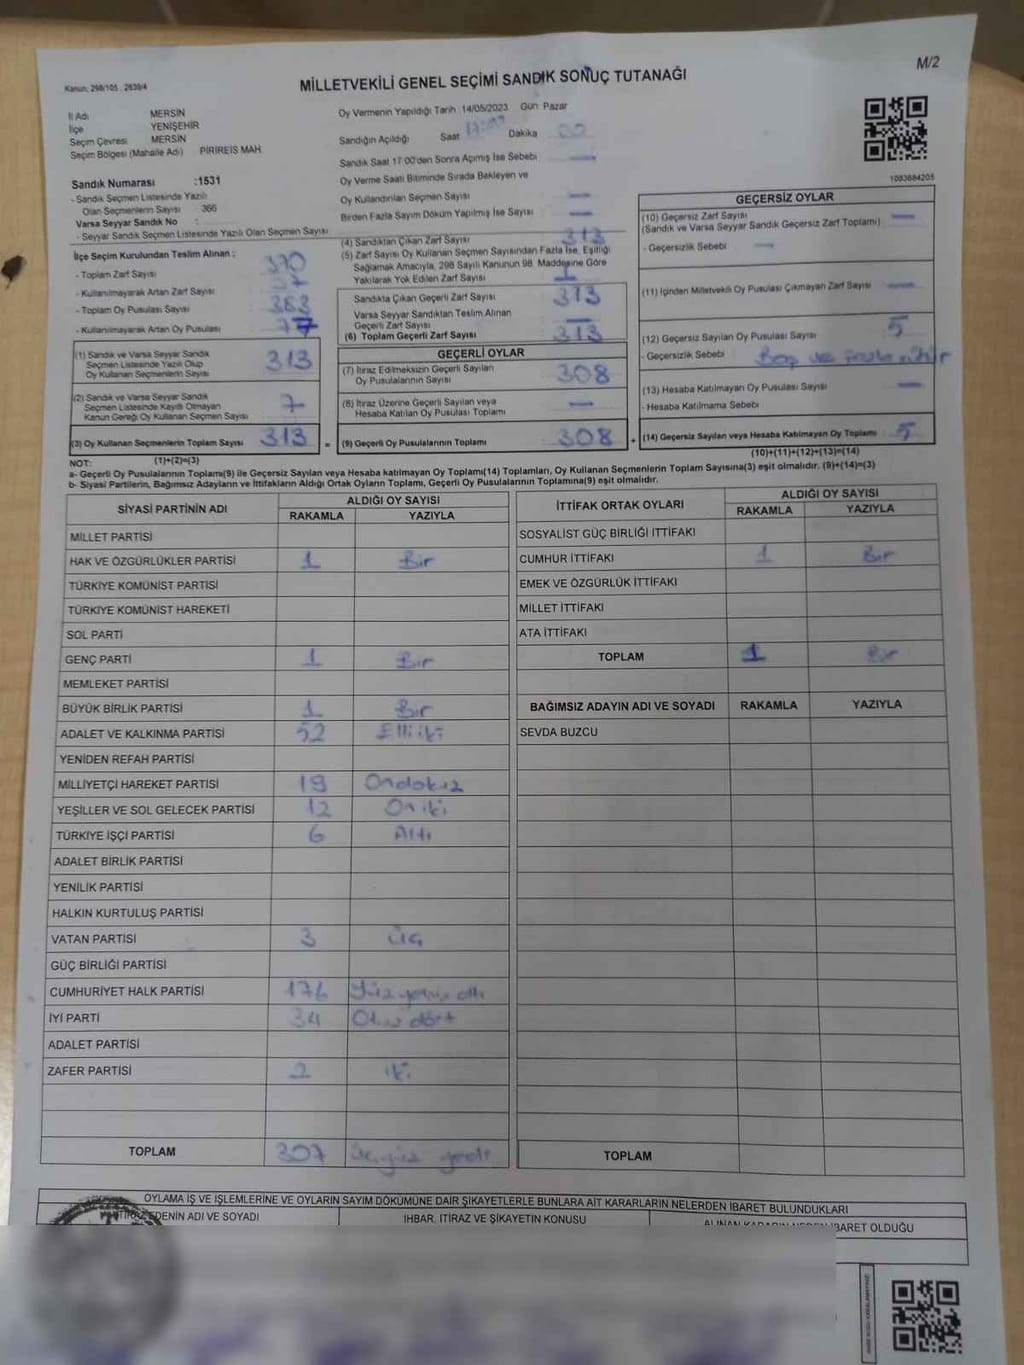 Kanun: 298/105 , 2839/4
MİLLETVEKİLİ GENEL SEÇİMİ SANDIK SONUÇ TUTANAĞI
M/2
İl Adı MERSİN
İlçe YENİŞEHİR
Seçim Çevresi MERSİN
Seçim Bölgesi (Mahalle Adı) PİRİREİS MAH.
Oy Vermenin Yapıldığı Tarih 14/05/2023 Gün Pazar
Sandığın Açıldığı Saat 17:00 Dakika 00
Sandık Saat 17:00'den Sonra Açılmış İse Sebebi —
Oy Verme Saati Bitiminde Sırada Bekleyen ve
Oy Kullandırılan Seçmen Sayısı —
Birden Fazla Sayım Döküm Yapılmış İse Sayısı —
1083684205
Sandık Numarası :1531
- Sandık Seçmen Listesinde Yazılı
Olan Seçmenlerin Sayısı 366
Varsa Seyyar Sandık No :
- Seyyar Sandık Seçmen Listesinde Yazılı Olan Seçmen Sayısı
İlçe Seçim Kurulundan Teslim Alınan :
- Toplam Zarf Sayısı 370
- Kullanılmayarak Artan Zarf Sayısı
- Toplam Oy Pusulası Sayısı 383
- Kullanılmayarak Artan Oy Pusulası 77
(1) Sandık ve Varsa Seyyar Sandık
Seçmen Listesinde Yazılı Olup
Oy Kullanan Seçmenlerin Sayısı 313
(2) Sandık ve Varsa Seyyar Sandık
Seçmen Listesinde Kayıtlı Olmayan
Kanun Gereği Oy Kullanan Seçmen Sayısı
(3) Oy Kullanan Seçmenlerin Toplam Sayısı 313 =
(1)+(2)=(3)
(4) Sandıktan Çıkan Zarf Sayısı 313
(5) Zarf Sayısı Oy Kullanan Seçmen Sayısından Fazla İse, Eşitliği
Sağlamak Amacıyla, 298 Sayılı Kanunun 98. Maddesine Göre
Yakılarak Yok Edilen Zarf Sayısı
Sandıkta Çıkan Geçerli Zarf Sayısı 313
Varsa Seyyar Sandıktan Teslim Alınan
Geçerli Zarf Sayısı —
(6) Toplam Geçerli Zarf Sayısı 313
GEÇERLİ OYLAR
(7) İtiraz Edilmeksizin Geçerli Sayılan
Oy Pusulalarının Sayısı 308
(8) İtiraz Üzerine Geçerli Sayılan veya
Hesaba Katılan Oy Pusulası Toplamı —
(9) Geçerli Oy Pusulalarının Toplamı 308 +
GEÇERSİZ OYLAR
(10) Geçersiz Zarf Sayısı —
(Sandık ve Varsa Seyyar Sandık Geçersiz Zarf Toplamı)
- Geçersizlik Sebebi —
(11) İçinden Milletvekili Oy Pusulası Çıkmayan Zarf Sayısı —
(12) Geçersiz Sayılan Oy Pusulası Sayısı 5
- Geçersizlik Sebebi Boş ve fazla mühür
(13) Hesaba Katılmayan Oy Pusulası Sayısı —
- Hesaba Katılmama Sebebi
(14) Geçersiz Sayılan veya Hesaba Katılmayan Oy Toplamı 5
(10)+(11)+(12)+(13)=(14)
NOT:
a- Geçerli Oy Pusulalarının Toplamı(9) ile Geçersiz Sayılan veya Hesaba katılmayan Oy Toplamı(14) Toplamları, Oy Kullanan Seçmenlerin Toplam Sayısına(3) eşit olmalıdır. (9)+(14)=(3)
b- Siyasi Partilerin, Bağımsız Adayların ve İttifakların Aldığı Ortak Oyların Toplamı, Geçerli Oy Pusulalarının Toplamına(9) eşit olmalıdır.
SİYASİ PARTİNİN ADI ALDIĞI OY SAYISI
RAKAMLA YAZIYLA
MİLLET PARTİSİ
HAK VE ÖZGÜRLÜKLER PARTİSİ 1 Bir
TÜRKİYE KOMÜNİST PARTİSİ
TÜRKİYE KOMÜNİST HAREKETİ
SOL PARTİ
GENÇ PARTİ 1 Bir
MEMLEKET PARTİSİ
BÜYÜK BİRLİK PARTİSİ 1 Bir
ADALET VE KALKINMA PARTİSİ 52 Elli iki
YENİDEN REFAH PARTİSİ
MİLLİYETÇİ HAREKET PARTİSİ 19 Ondokuz
YEŞİLLER VE SOL GELECEK PARTİSİ 12 On iki
TÜRKİYE İŞÇİ PARTİSİ 6 Altı
ADALET BİRLİK PARTİSİ
YENİLİK PARTİSİ
HALKIN KURTULUŞ PARTİSİ
VATAN PARTİSİ 3 Üç
GÜÇ BİRLİĞİ PARTİSİ
CUMHURİYET HALK PARTİSİ 176 Yüz yetmiş altı
İYİ PARTİ 34 Otuz dört
ADALET PARTİSİ
ZAFER PARTİSİ 2 iki
TOPLAM 307 Üçyüz yedi
İTTİFAK ORTAK OYLARI ALDIĞI OY SAYISI
RAKAMLA YAZIYLA
SOSYALİST GÜÇ BİRLİĞİ İTTİFAKI
CUMHUR İTTİFAKI 1 Bir
EMEK VE ÖZGÜRLÜK İTTİFAKI
MİLLET İTTİFAKI
ATA İTTİFAKI
TOPLAM 1 Bir
BAĞIMSIZ ADAYIN ADI VE SOYADI RAKAMLA YAZIYLA
SEVDA BUZCU
TOPLAM
OYLAMA İŞ VE İŞLEMLERİNE VE OYLARIN SAYIM DÖKÜMÜNE DAİR ŞİKAYETLERLE BUNLARA AİT KARARLARIN NELERDEN İBARET BULUNDUKLARI
İTİRAZ EDENİN ADI VE SOYADI İHBAR, İTİRAZ VE ŞİKAYETİN KONUSU ALINAN KARARIN NEDEN İBARET OLDUĞU